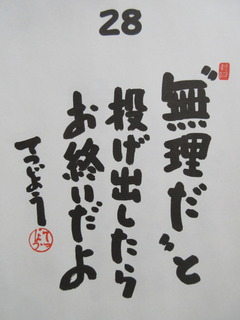 28
〝無理だ〟と
投げ出したら
お終いだよ
てつじょう